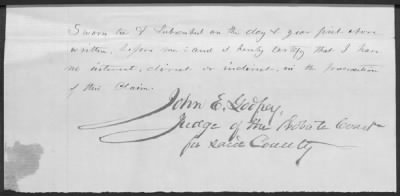 Sworn to & Subscribed on the day & year first above
written, before me: and I hereby certify that I have
no interest, direct or indirect, in the prosecution
of this Claim.
John E. Godfrey
Judge of the Probate Court
for said County